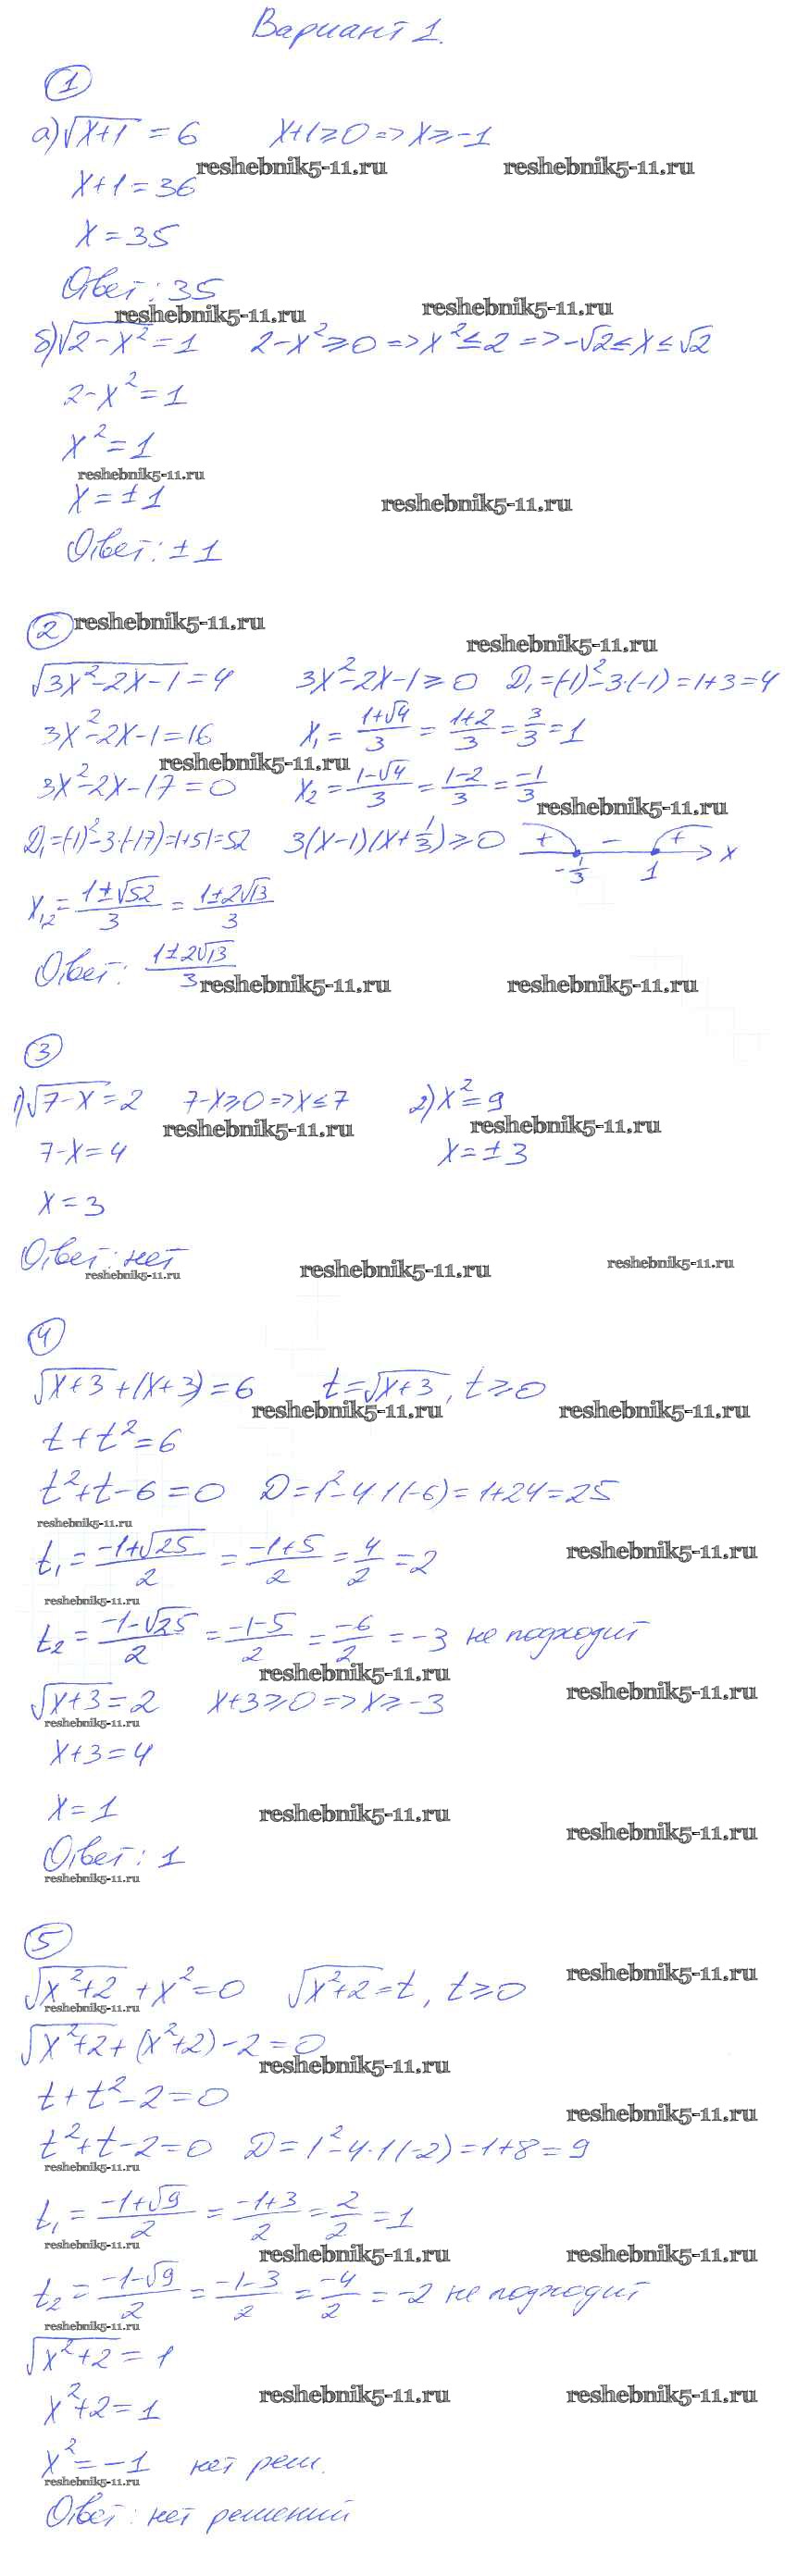 Вариант 1.
1
а) √(x+1) = 6    x+1≥0 => x≥-1
reshebnik5-11.ru    reshebnik5-11.ru
x+1=36
x=35
Ответ: 35
reshebnik5-11.ru    reshebnik5-11.ru
б) √(2-x²) = 1    2-x²≥0 => x²≤2 => -√2≤x≤√2
2-x²=1
x²=1
reshebnik5-11.ru
x=±1    reshebnik5-11.ru
Ответ: ±1
2 reshebnik5-11.ru
reshebnik5-11.ru
√(3x²-2x-1) = 4    3x²-2x-1≥0    D₁=(-1)²-3·(-1)=1+3=4
3x²-2x-1=16    x₁ = (1+√4)/3 = (1+2)/3 = 3/3 = 1
reshebnik5-11.ru
3x²-2x-17=0    x₂ = (1-√4)/3 = (1-2)/3 = -1/3
reshebnik5-11.ru
D₁=(-1)²-3·(-17)=1+51=52    3(x-1)(x+1/3)≥0    + - + x
-1/3    1
x₁,₂ = (1±√52)/3 = (1±2√13)/3
Ответ: (1±2√13)/3
reshebnik5-11.ru    reshebnik5-11.ru
3
1) √(7-x) = 2    7-x≥0 => x≤7    2) x²=9
reshebnik5-11.ru    reshebnik5-11.ru
7-x=4    x=±3
x=3
Ответ: нет
reshebnik5-11.ru    reshebnik5-11.ru    reshebnik5-11.ru
4
√(x+3) + (x+3) = 6    t=√(x+3), t≥0
reshebnik5-11.ru    reshebnik5-11.ru
t+t²=6
t²+t-6=0    D=1²-4·1·(-6)=1+24=25
reshebnik5-11.ru
t₁ = (-1+√25)/2 = (-1+5)/2 = 4/2 = 2    reshebnik5-11.ru
reshebnik5-11.ru
t₂ = (-1-√25)/2 = (-1-5)/2 = -6/2 = -3 не подходит
reshebnik5-11.ru
√(x+3) = 2    x+3≥0 => x≥-3    reshebnik5-11.ru
reshebnik5-11.ru
x+3=4
x=1    reshebnik5-11.ru
reshebnik5-11.ru
Ответ: 1
reshebnik5-11.ru
5
reshebnik5-11.ru
√(x²+2) + x² = 0    √(x²+2) = t, t≥0
reshebnik5-11.ru
√(x²+2) + (x²+2) - 2 = 0
reshebnik5-11.ru
t+t²-2=0
reshebnik5-11.ru
t²+t-2=0    D=1²-4·1(-2)=1+8=9
reshebnik5-11.ru
t₁ = (-1+√9)/2 = (-1+3)/2 = 2/2 = 1
reshebnik5-11.ru    reshebnik5-11.ru    reshebnik5-11.ru
t₂ = (-1-√9)/2 = (-1-3)/2 = -4/2 = -2 не подходит
reshebnik5-11.ru
√(x²+2) = 1
reshebnik5-11.ru    reshebnik5-11.ru
x²+2=1
x²=-1    нет реш.
reshebnik5-11.ru
Ответ: нет решений